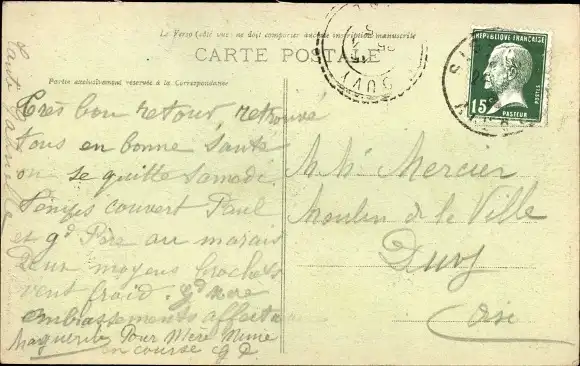 Le Verso (côté vue) ne doit comporter aucune inscription manuscrite
CARTE POSTALE
Partie exclusivement réservée à la Correspondance
Très bon retour, retrouve
tous en bonne santé
on se quitte Samedi.
Temps couvert Paul
et gd Père au marais
Deux moyens brochets
vent froid. Gd Mère
embrassements affectueux
Marguerite Pour Mère Mimi
en course
Mr Mercier
Moulin de la Ville
Duvy
Oise
DUVY
REPUBLIQUE FRANÇAISE
15c
POSTES
PASTEUR